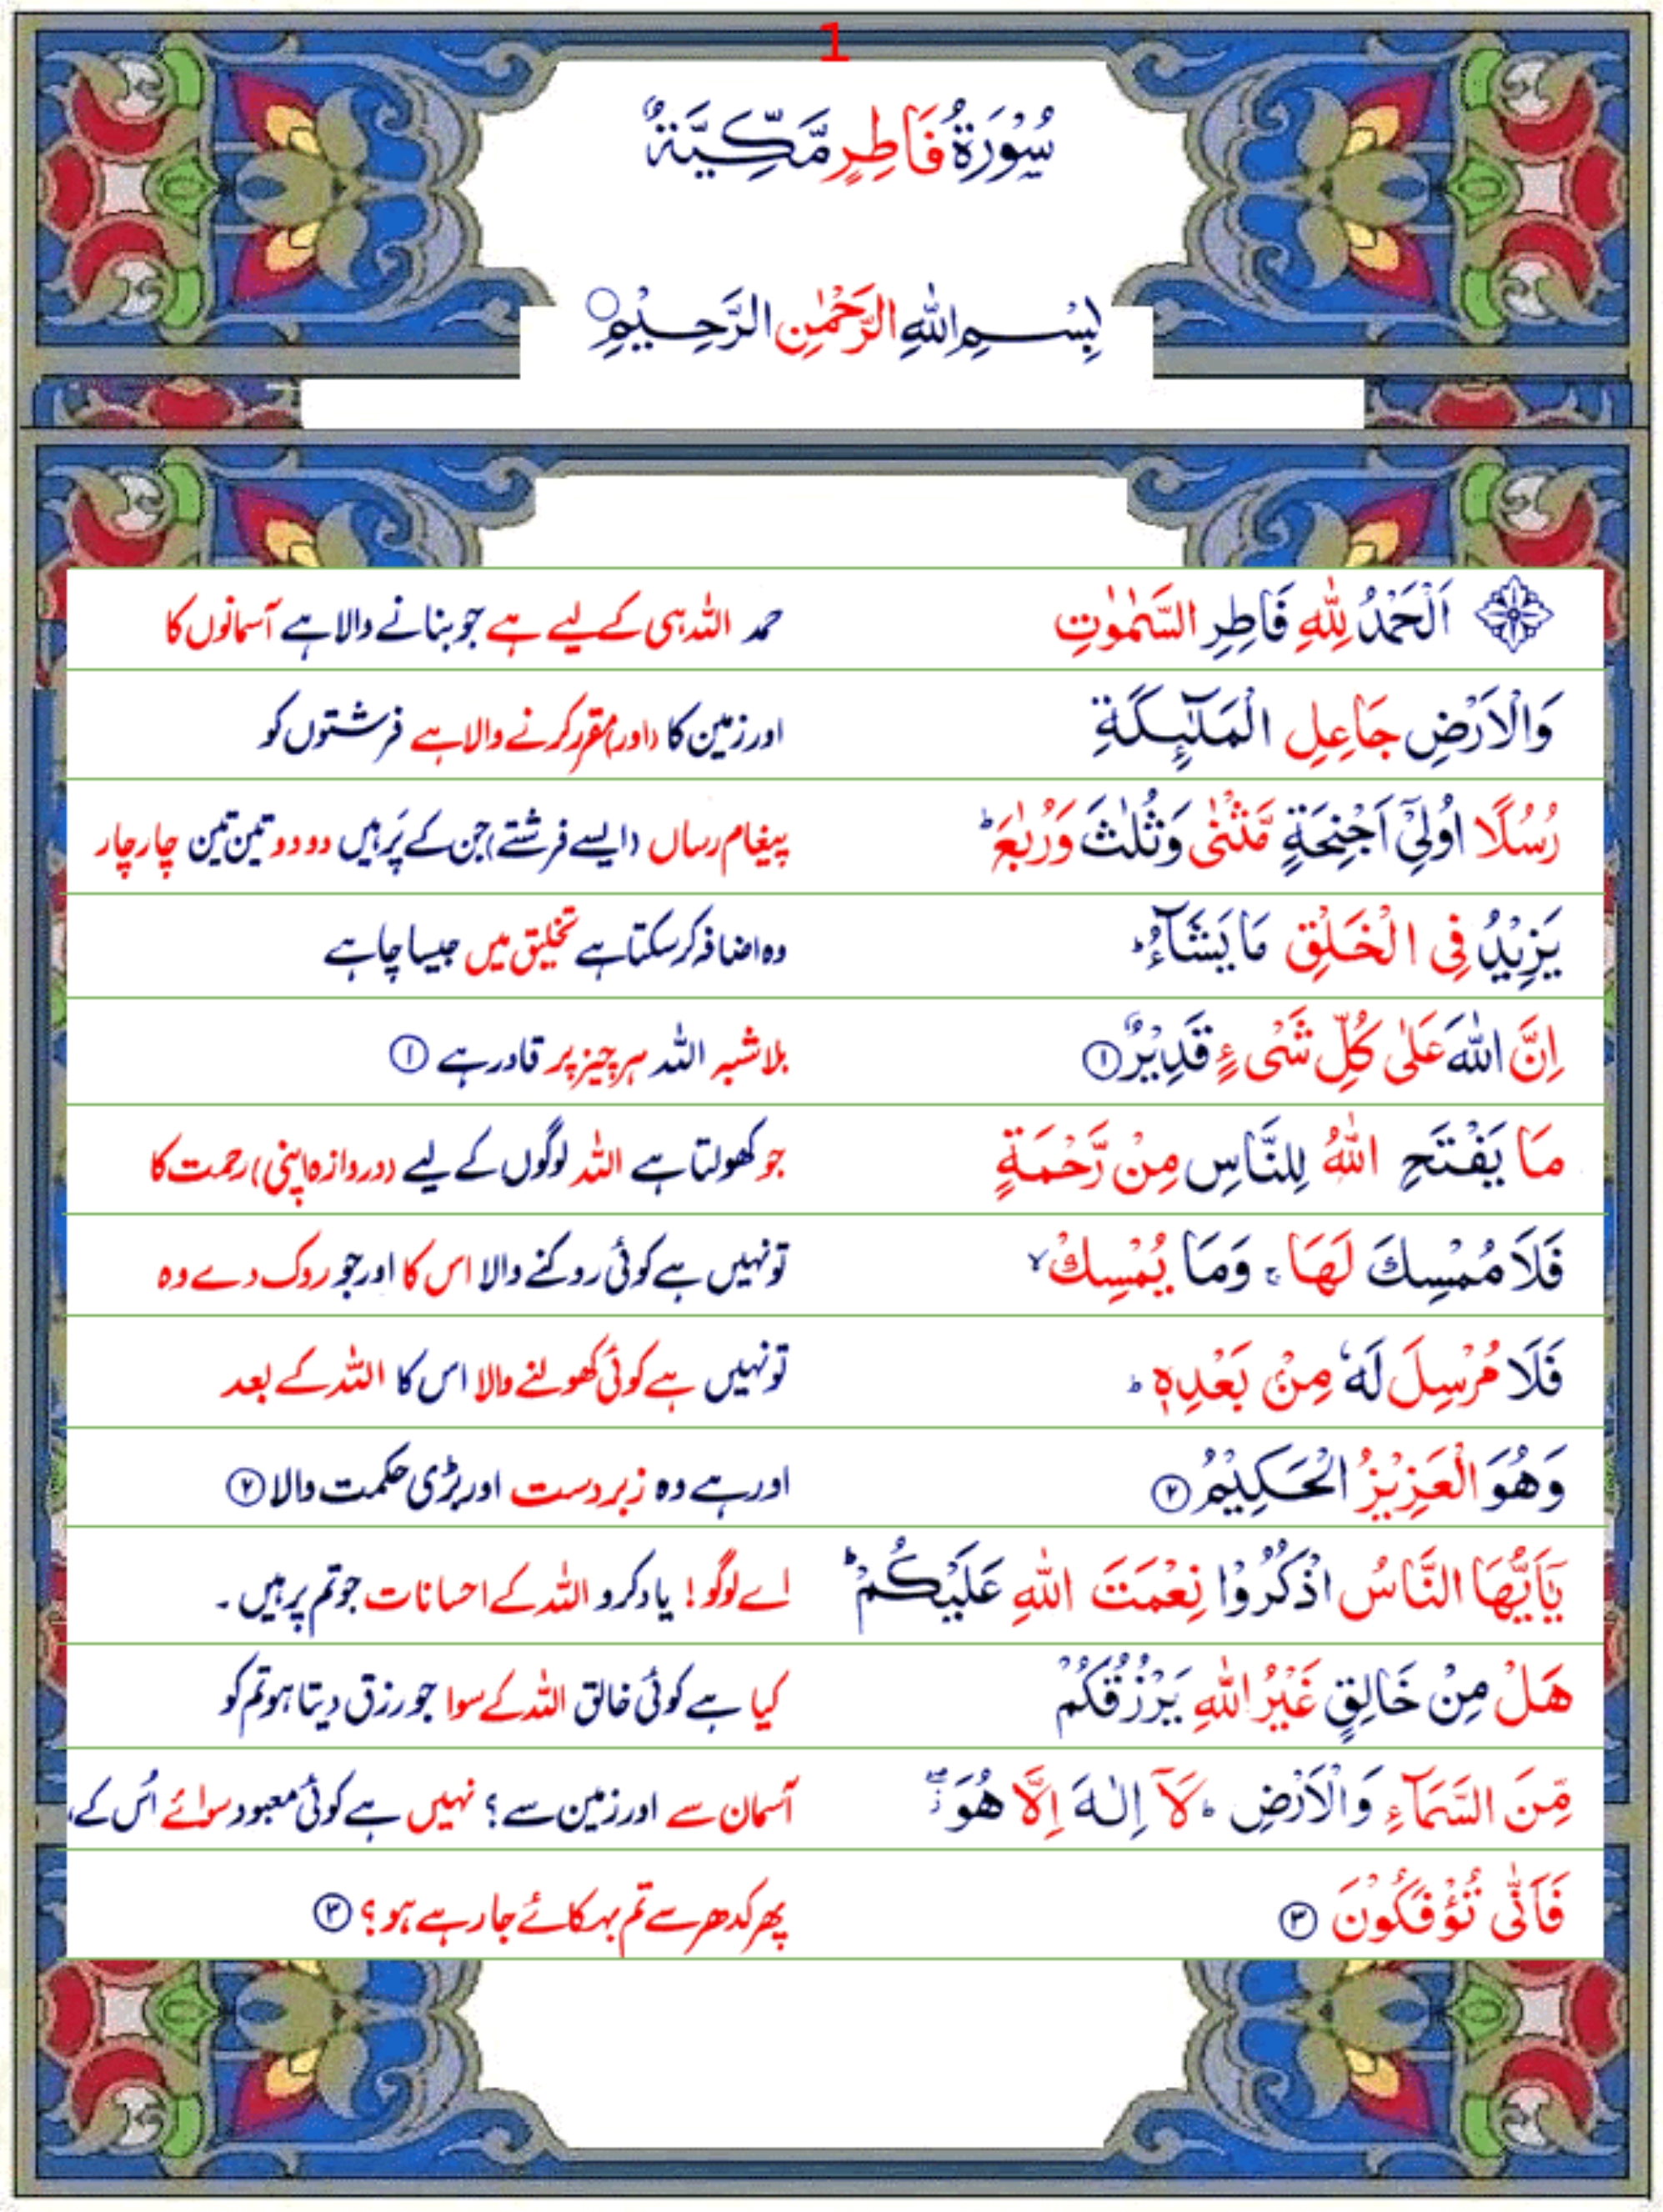 1
سُوْرَةُ فَاطِرٍ مَّكِّيَّةٌ
بِسْمِ اللّٰهِ الرَّحْمٰنِ الرَّحِيْمِ
اَلْحَمْدُ لِلّٰهِ فَاطِرِ السَّمٰوٰتِ حمد اللہ ہی کے لیے ہے جو بنانے والا ہے آسمانوں کا
وَالْاَرْضِ جَاعِلِ الْمَلٰٓئِكَةِ اور زمین کا (اور) مقرر کرنے والا ہے فرشتوں کو
رُسُلًا اُولِيْٓ اَجْنِحَةٍ مَّثْنٰى وَثُلٰثَ وَرُبٰعَ ؕ پیغام رساں (ایسے فرشتے) جن کے پَر ہیں دو دو تین تین چار چار
يَزِيْدُ فِى الْخَلْقِ مَا يَشَآءُ ؕ وہ اضافہ کر سکتا ہے تخلیق میں جیسا چاہے
اِنَّ اللّٰهَ عَلٰى كُلِّ شَىْءٍ قَدِيْرٌ ۱ بلاشبہ اللہ ہر چیز پر قادر ہے ۱
مَا يَفْتَحِ اللّٰهُ لِلنَّاسِ مِنْ رَّحْمَةٍ جو کھولتا ہے اللہ لوگوں کے لیے (دروازہ اپنی) رحمت کا
فَلَا مُمْسِكَ لَهَا ۚ وَمَا يُمْسِكْ ۙ تو نہیں ہے کوئی روکنے والا اس کا اور جو روک دے وہ
فَلَا مُرْسِلَ لَهٗ مِنْۢ بَعْدِهٖ ؕ تو نہیں ہے کوئی کھولنے والا اس کا اللہ کے بعد
وَهُوَ الْعَزِيْزُ الْحَكِيْمُ ۲ اور ہے وہ زبردست اور بڑی حکمت والا ۲
يٰٓاَيُّهَا النَّاسُ اذْكُرُوْا نِعْمَتَ اللّٰهِ عَلَيْكُمْ ؕ اے لوگو! یاد کرو اللہ کے احسانات جو تم پر ہیں۔
هَلْ مِنْ خَالِقٍ غَيْرُ اللّٰهِ يَرْزُقُكُمْ کیا ہے کوئی خالق اللہ کے سوا جو رزق دیتا ہو تم کو
مِّنَ السَّمَآءِ وَالْاَرْضِ ؕ لَآ اِلٰهَ اِلَّا هُوَ ۖ آسمان سے اور زمین سے؟ نہیں ہے کوئی معبود سوائے اُس کے،
فَاَنّٰى تُؤْفَكُوْنَ ۳ پھر کدھر سے تم بہکائے جا رہے ہو؟ ۳